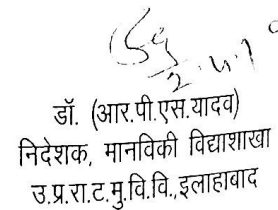 डॉ. (आर.पी.एस.यादव)
निदेशक, मानविकी विद्याशाखा
उ.प्र.रा.ट.मु.वि.वि.,इलाहाबाद